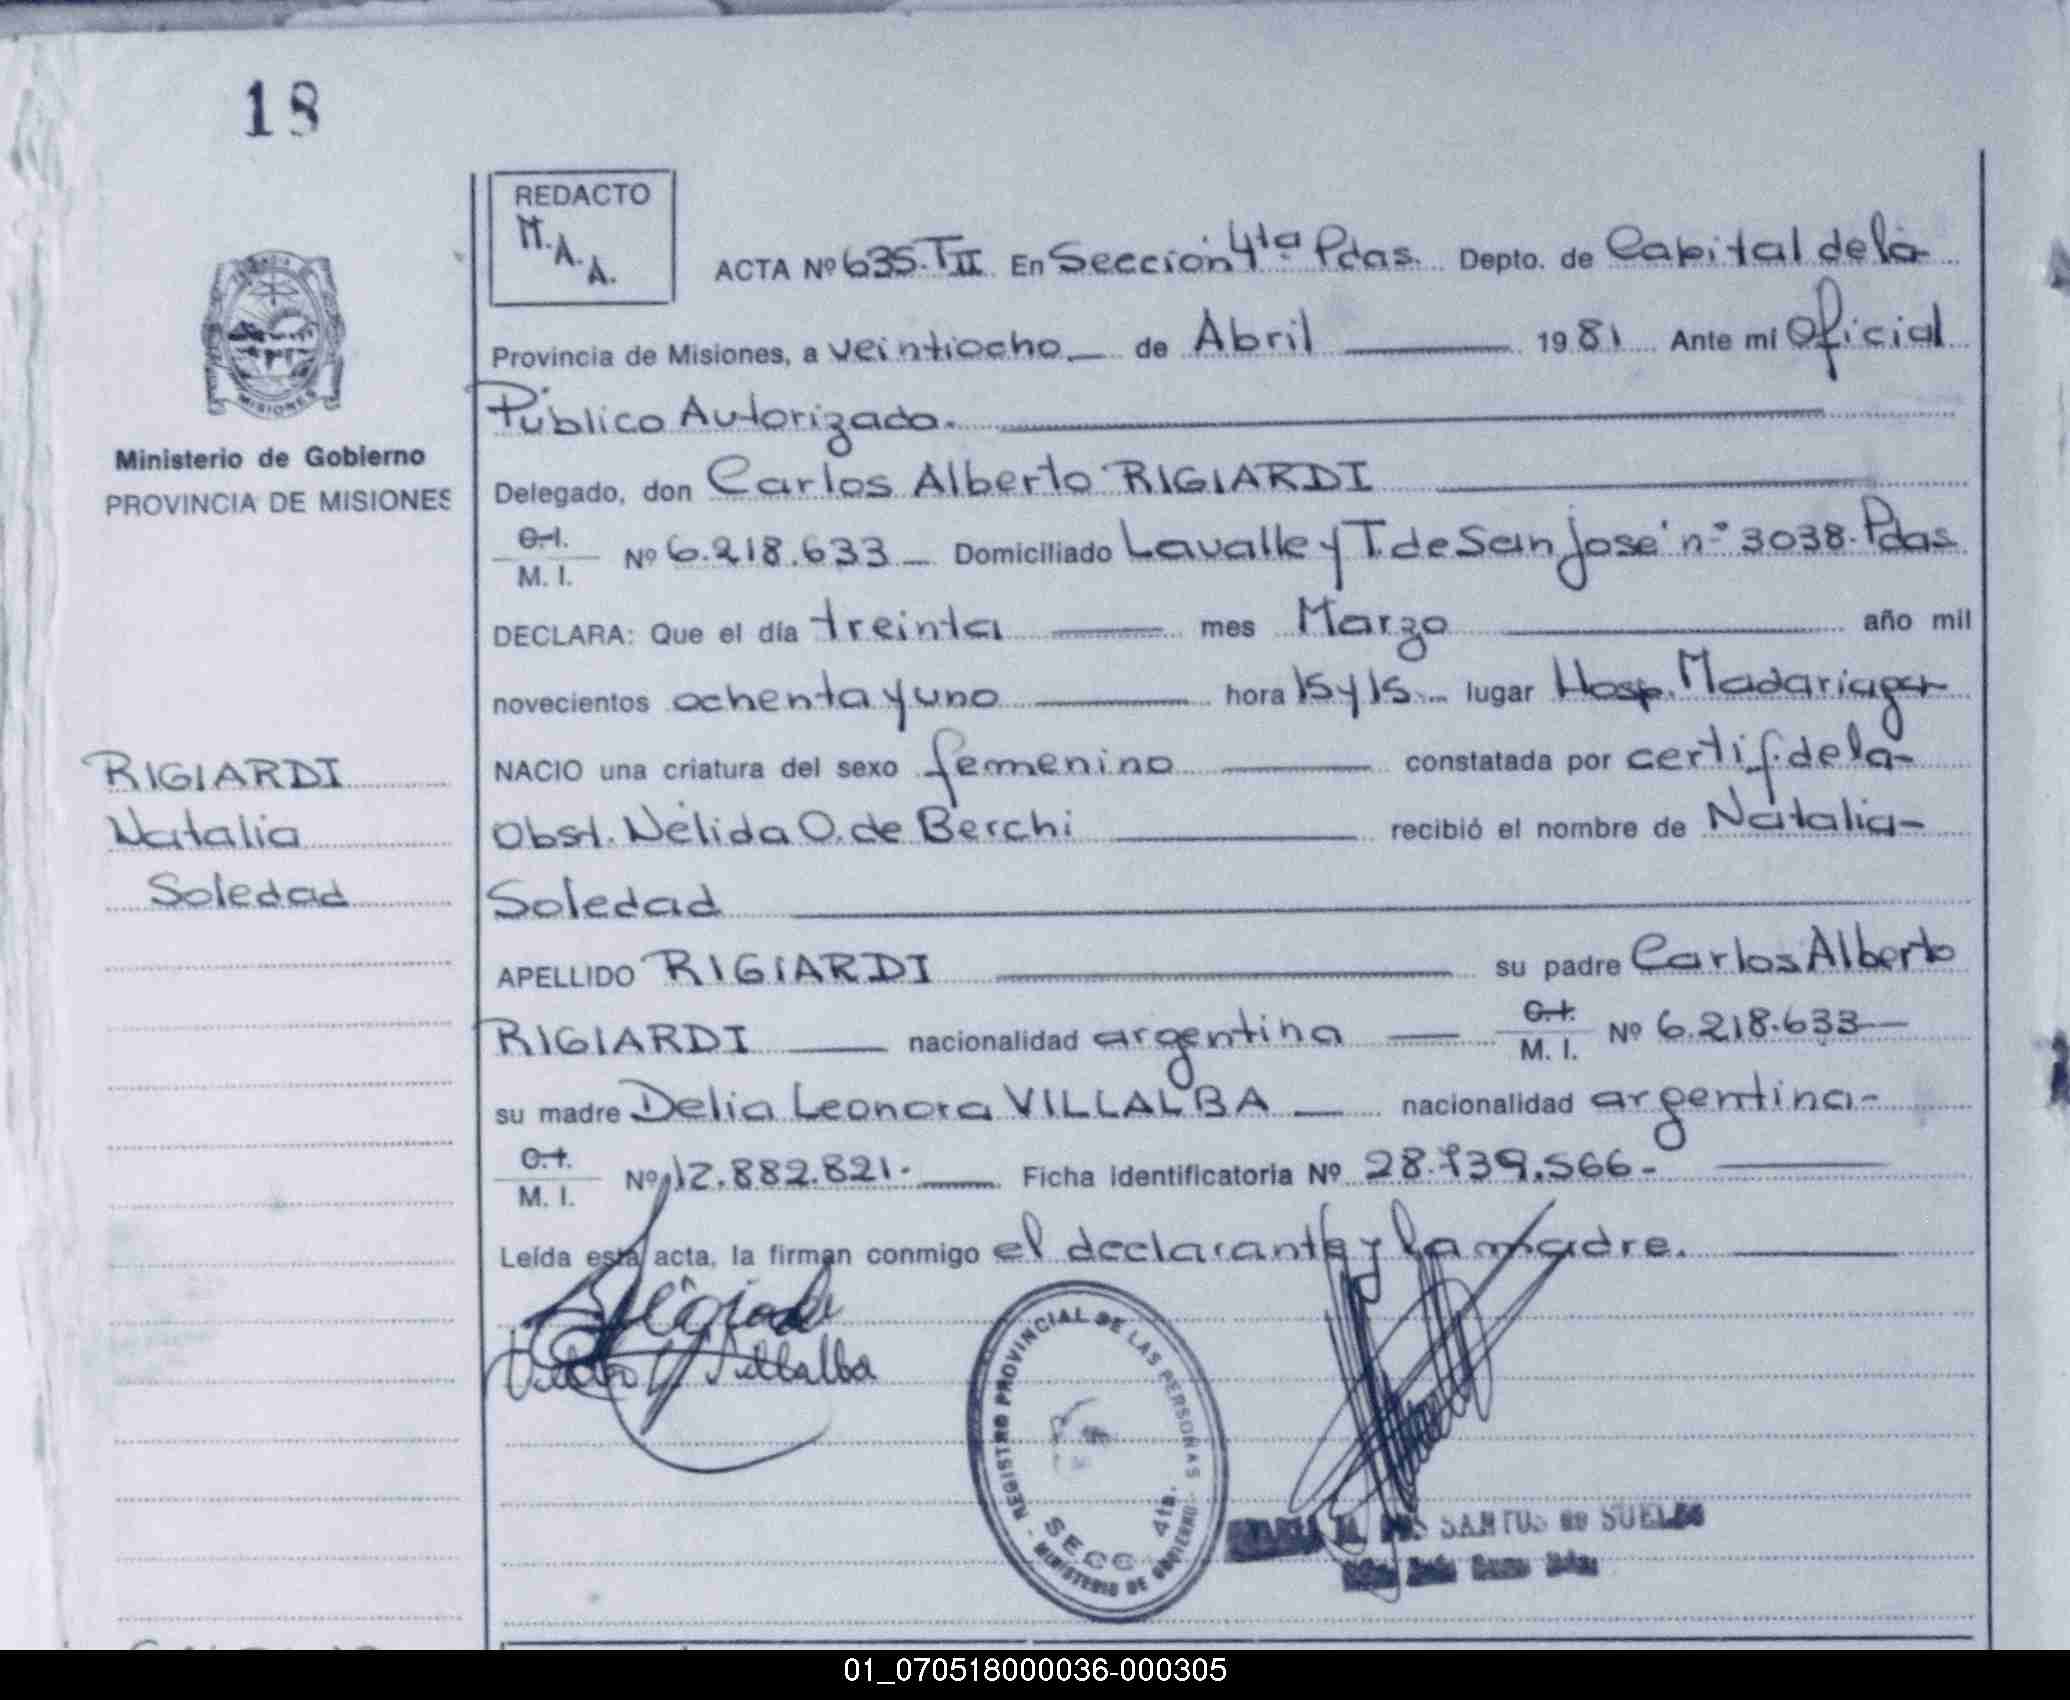 18
REDACTO
M.A.A.
ACTA Nº 635.TII En Sección 4ta Pdas. Depto. de Capital de la
Provincia de Misiones, a veintiocho de Abril 1981 Ante mi Oficial
Público Autorizado.
MISIONES
Ministerio de Gobierno
PROVINCIA DE MISIONES
Delegado, don Carlos Alberto RIGIARDI
C.I.
M. I. Nº 6.218.633 Domiciliado Lavalle y T. de San José nº 3038. Pdas
DECLARA: Que el día treinta mes Marzo año mil
novecientos ochenta y uno hora 15 y 15 lugar Hosp. Madariaga
RIGIARDI
Natalia
Soledad
NACIO una criatura del sexo femenino constatada por certif. de la
Obst. Nélida O. de Berchi recibió el nombre de Natalia
Soledad
APELLIDO RIGIARDI su padre Carlos Alberto
RIGIARDI nacionalidad argentina C.I. M. I. Nº 6.218.633
su madre Delia Leonora VILLALBA nacionalidad argentina
C.I.
M. I. Nº 12.882.821. Ficha identificatoria Nº 28.739.566
Leída esta acta, la firman conmigo el declarante y la madre.
Villalba
REGISTRO PROVINCIAL DE LAS PERSONAS - MINISTERIO DE GOBIERNO -
SECC 4ta.
SANTOS de SUELDO
01_070518000036-000305